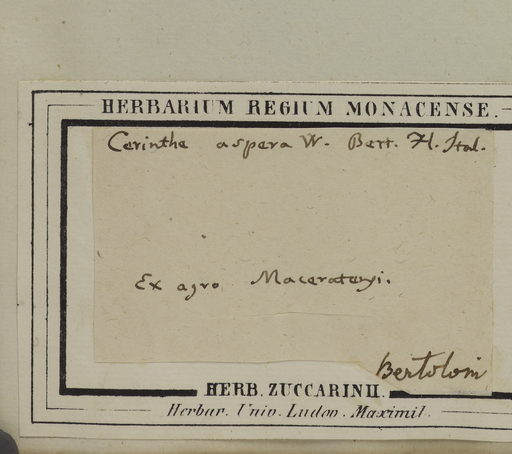 HERBARIUM REGIUM MONACENSE.
Cerinthe aspera W. Bert. Fl. Ital.
Ex agro Maceratensi.
Bertoloni
HERB. ZUCCARINII.
Herbar. Univ. Ludov. Maximil.